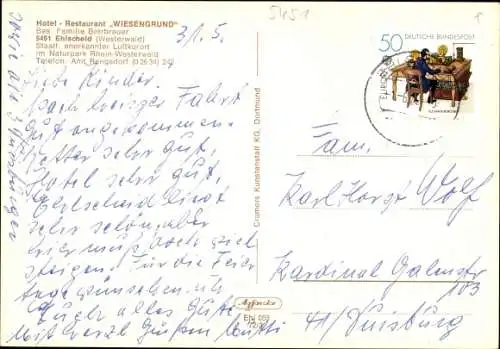 5451
Hotel - Restaurant „WIESENGRUND"
Bes. Familie Bierbrauer
5451 Ehlscheid (Westerwald)
Staatl. anerkannter Luftkurort
im Naturpark Rhein-Westerwald
Telefon: Amt Rengsdorf (0 26 34) 242
31.5.
Liebe Kinder.
Nach Fahrt
Gut angekommen.
Wetter sehr gut,
Hotel sehr gut,
Ehlscheid liegt
sehr schön, aber
hier muß
steigen. Für die Feier
tage wünschen wir
Euch alles Gute
Mit herzl Grüßen Mutti
Cramers Kunstanstalt KG, Dortmund
50
DEUTSCHE BUNDESPOST
Fam.
Karl Horst Wolf
Kardinal Galenstr
103
41 / Duisburg